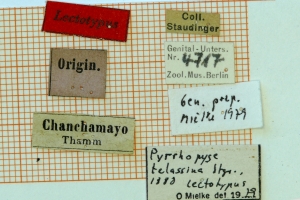 Lectotypus
Coll.
Staudinger
Origin.
Genital-Unters.
Nr. 4717
Zool. Mus. Berlin
Gen. prep.
Mielke 1979
Chanchamayo
Thamm
Pyrrhopyge
telassina Stgr.,
1888 Lectotypus
O Mielke det 1979